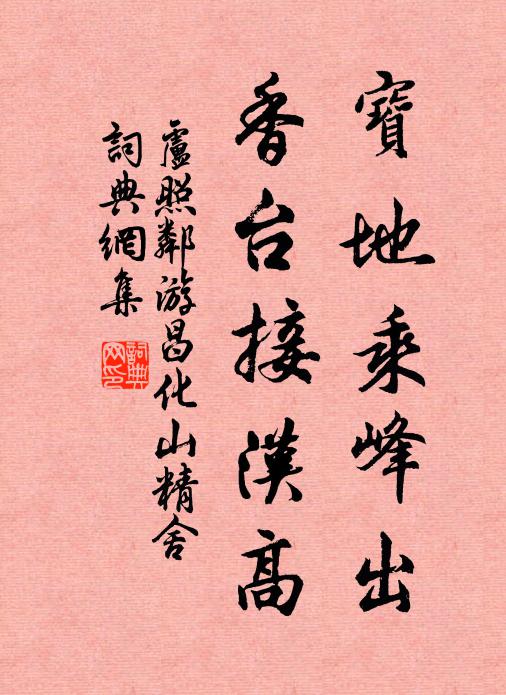 寶地乘峰出
香台接漢高
盧照鄰游昌化山精舍
詞典網集
詞典网印